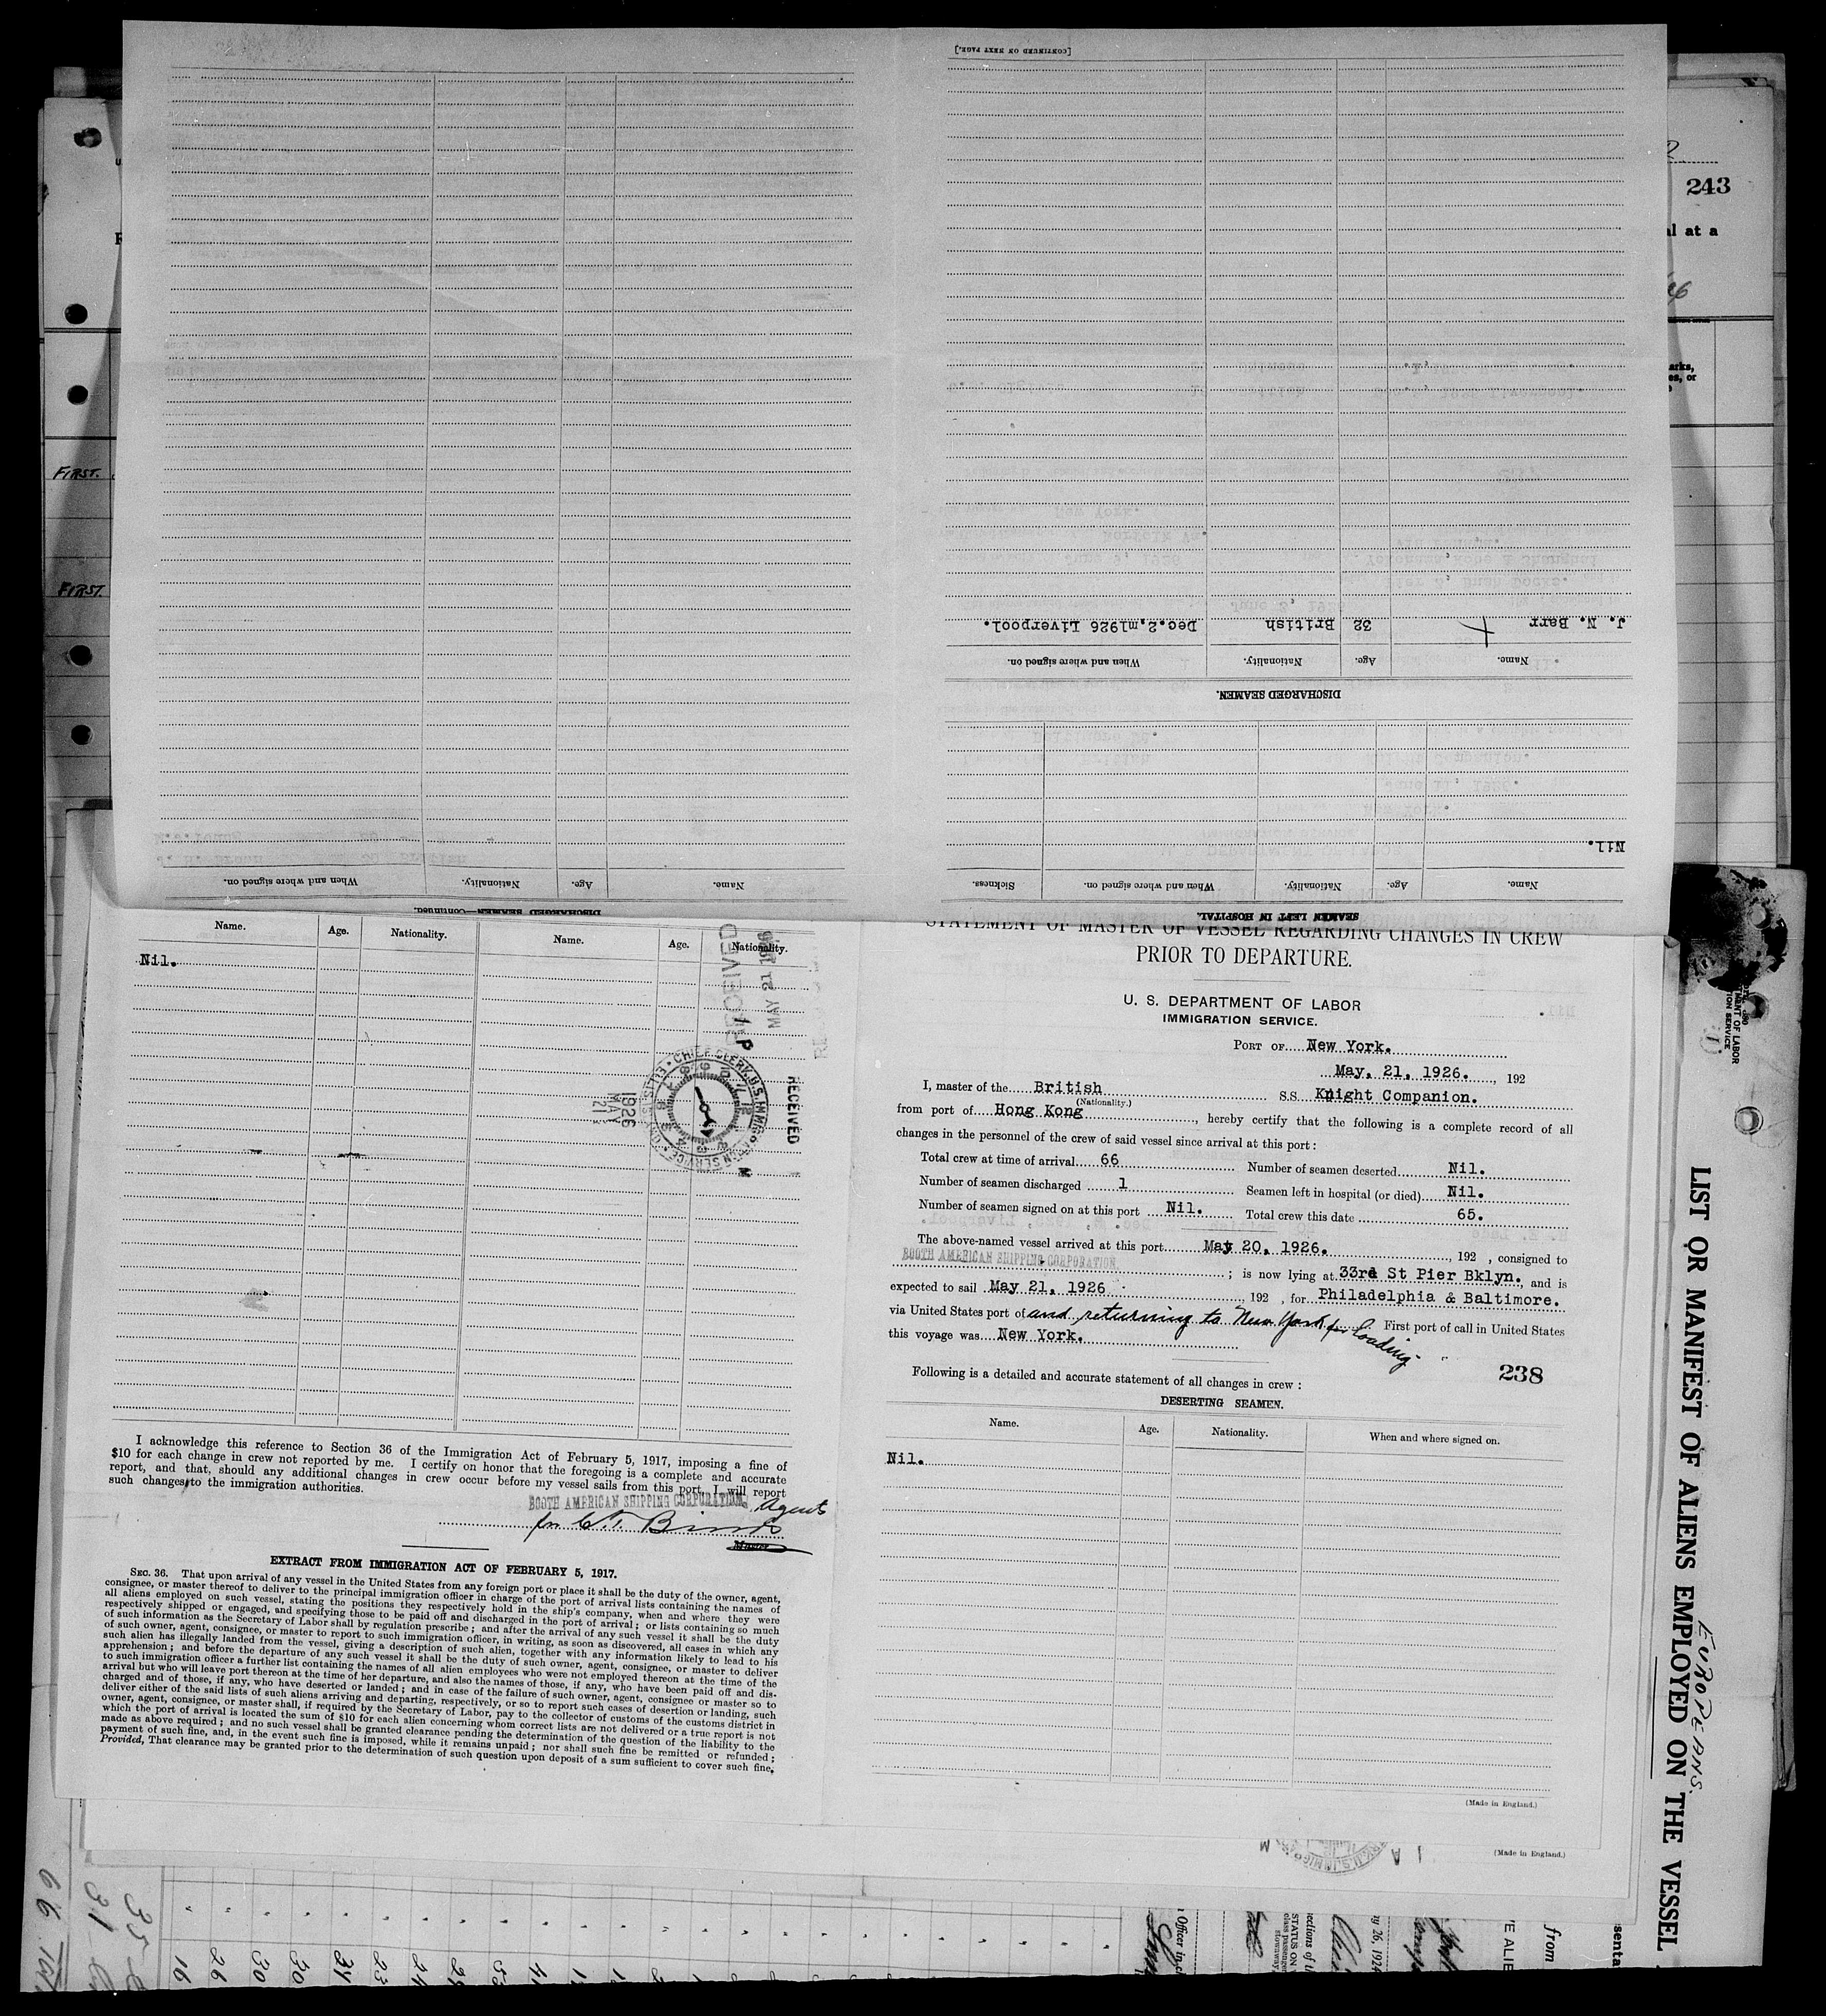 [CONTINUED ON NEXT PAGE.]
243
al at a
arks,
es, or
FIRST.
FIRST.
J. N. Barr 32 British Dec.2,m1926 Liverpool.
Name. Age. Nationality. When and where signed on.
DISCHARGED SEAMEN.
Nil.
Name. Age. Nationality. When and where signed on. Sickness.
SEAMEN LEFT IN HOSPITAL.
Name. Age. Nationality. When and where signed on.
DISCHARGED SEAMEN—Continued.
Name. Age. Nationality. Name. Age. Nationality.
Nil.
RECEIVED
MAY 21 1926
CHIEF CLERK, U.S. IMMIGRATION SERVICE
RECEIVED
1926
MAY
21
I acknowledge this reference to Section 36 of the Immigration Act of February 5, 1917, imposing a fine of
$10 for each change in crew not reported by me. I certify on honor that the foregoing is a complete and accurate
report, and that, should any additional changes in crew occur before my vessel sails from this port, I will report
such changes to the immigration authorities.
BOOTH AMERICAN SHIPPING CORPORATION. Agents
for
Master
EXTRACT FROM IMMIGRATION ACT OF FEBRUARY 5, 1917.
SEC. 36. That upon arrival of any vessel in the United States from any foreign port or place it shall be the duty of the owner, agent,
consignee, or master thereof to deliver to the principal immigration officer in charge of the port of arrival lists containing the names of
all aliens employed on such vessel, stating the positions they respectively hold in the ship's company, when and where they were
respectively shipped or engaged, and specifying those to be paid off and discharged in the port of arrival; or lists containing so much
of such information as the Secretary of Labor shall by regulation prescribe; and after the arrival of any such vessel it shall be the duty
of such owner, agent, consignee, or master to report to such immigration officer, in writing, as soon as discovered, all cases in which any
such alien has illegally landed from the vessel, giving a description of such alien, together with any information likely to lead to his
apprehension; and before the departure of any such vessel it shall be the duty of such owner, agent, consignee, or master to deliver
to such immigration officer a further list containing the names of all alien employees who were not employed thereon at the time of the
arrival but who will leave port thereon at the time of her departure, and also the names of those, if any, who have been paid off and dis-
charged and of those, if any, who have deserted or landed; and in case of the failure of such owner, agent, consignee or master so to
deliver either of the said lists of such aliens arriving and departing, respectively, or so to report such cases of desertion or landing, such
owner, agent, consignee, or master shall, if required by the Secretary of Labor, pay to the collector of customs of the customs district in
which the port of arrival is located the sum of $10 for each alien concerning whom correct lists are not delivered or a true report is not
made as above required; and no such vessel shall be granted clearance pending the determination of the question of the liability to the
payment of such fine, and, in the event such fine is imposed, while it remains unpaid; nor shall such fine be remitted or refunded;
Provided, That clearance may be granted prior to the determination of such question upon deposit of a sum sufficient to cover such fine.
STATEMENT OF MASTER OF VESSEL REGARDING CHANGES IN CREW
PRIOR TO DEPARTURE.
U. S. DEPARTMENT OF LABOR
IMMIGRATION SERVICE.
PORT OF New York.
May, 21, 1926. , 192
I, master of the British S.S. Knight Companion.
(Nationality.)
from port of Hong Kong , hereby certify that the following is a complete record of all
changes in the personnel of the crew of said vessel since arrival at this port:
Total crew at time of arrival 66 Number of seamen deserted Nil.
Number of seamen discharged 1 Seamen left in hospital (or died) Nil.
Number of seamen signed on at this port Nil. Total crew this date 65.
The above-named vessel arrived at this port May 20, 1926. , 192 , consigned to
BOOTH AMERICAN SHIPPING CORPORATION ; is now lying at 33rd St Pier Bklyn. and is
expected to sail May 21, 1926 , 192 , for Philadelphia & Baltimore.
via United States port of and returning to New York for loading. First port of call in United States
this voyage was New York.
238
Following is a detailed and accurate statement of all changes in crew:
DESERTING SEAMEN.
Name. Age. Nationality. When and where signed on.
Nil.
(Made in England.)
(Made in England.)
LIST OR MANIFEST OF ALIENS EMPLOYED ON THE VESSEL
EUROPEANS.
MENT OF LABOR
TION SERVICE
16
26
30
30
34
23
35
31
66
from